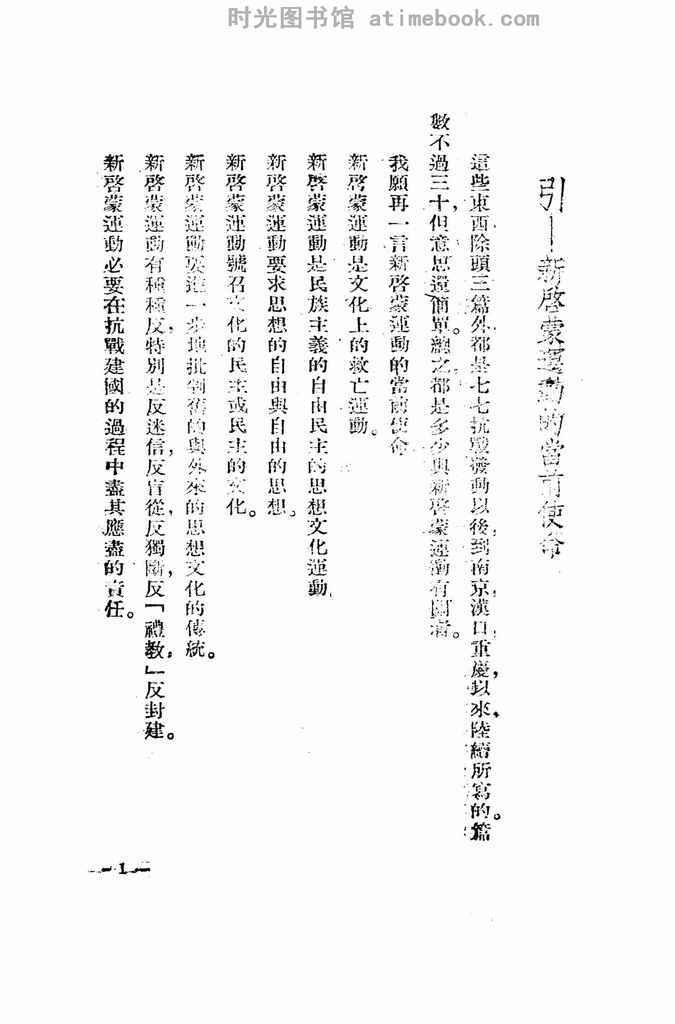 时光图书馆 atimebook.com
引—新啓蒙運動的當前使命
這些東西除頭三篇外都是七七抗戰發動以後，到南京，漢口，重慶，以來，陸續所寫的。篇
數不過三十，但意思還簡單。總之，都是多少與新啓蒙運動有關者。
我願再一言新啓蒙運動的當前使命
新啓蒙運動是文化上的救亡運動。
新啓蒙運動是民族主義的自由民主的思想文化運動，
新啓蒙運動要求思想的自由與自由的思想。
新啓蒙運動號召文化的民主或民主的文化。
新啓蒙運動要進一步地批判舊的與外來的思想文化的傳統。
新啓蒙運動有種種反，特別是反迷信，反盲從，反獨斷，反「禮教，」反封建。
新啓蒙運動必要在抗戰建國的過程中盡其應盡的責任。
—1—